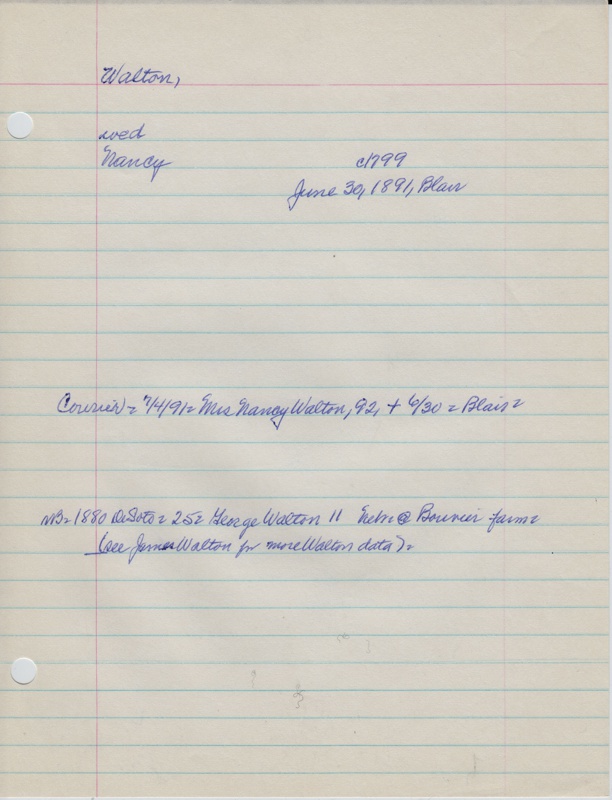 Walton,
wed
Nancy c1799
June 30, 1891, Blair
Courier = 7/4/91 = Mrs Nancy Walton, 92, + 6/30 = Blair =
NB = 1880 DeSoto = 25 = George Walton 11 Nebr @ Bouvier farm =
(see James Walton for more Walton data) =